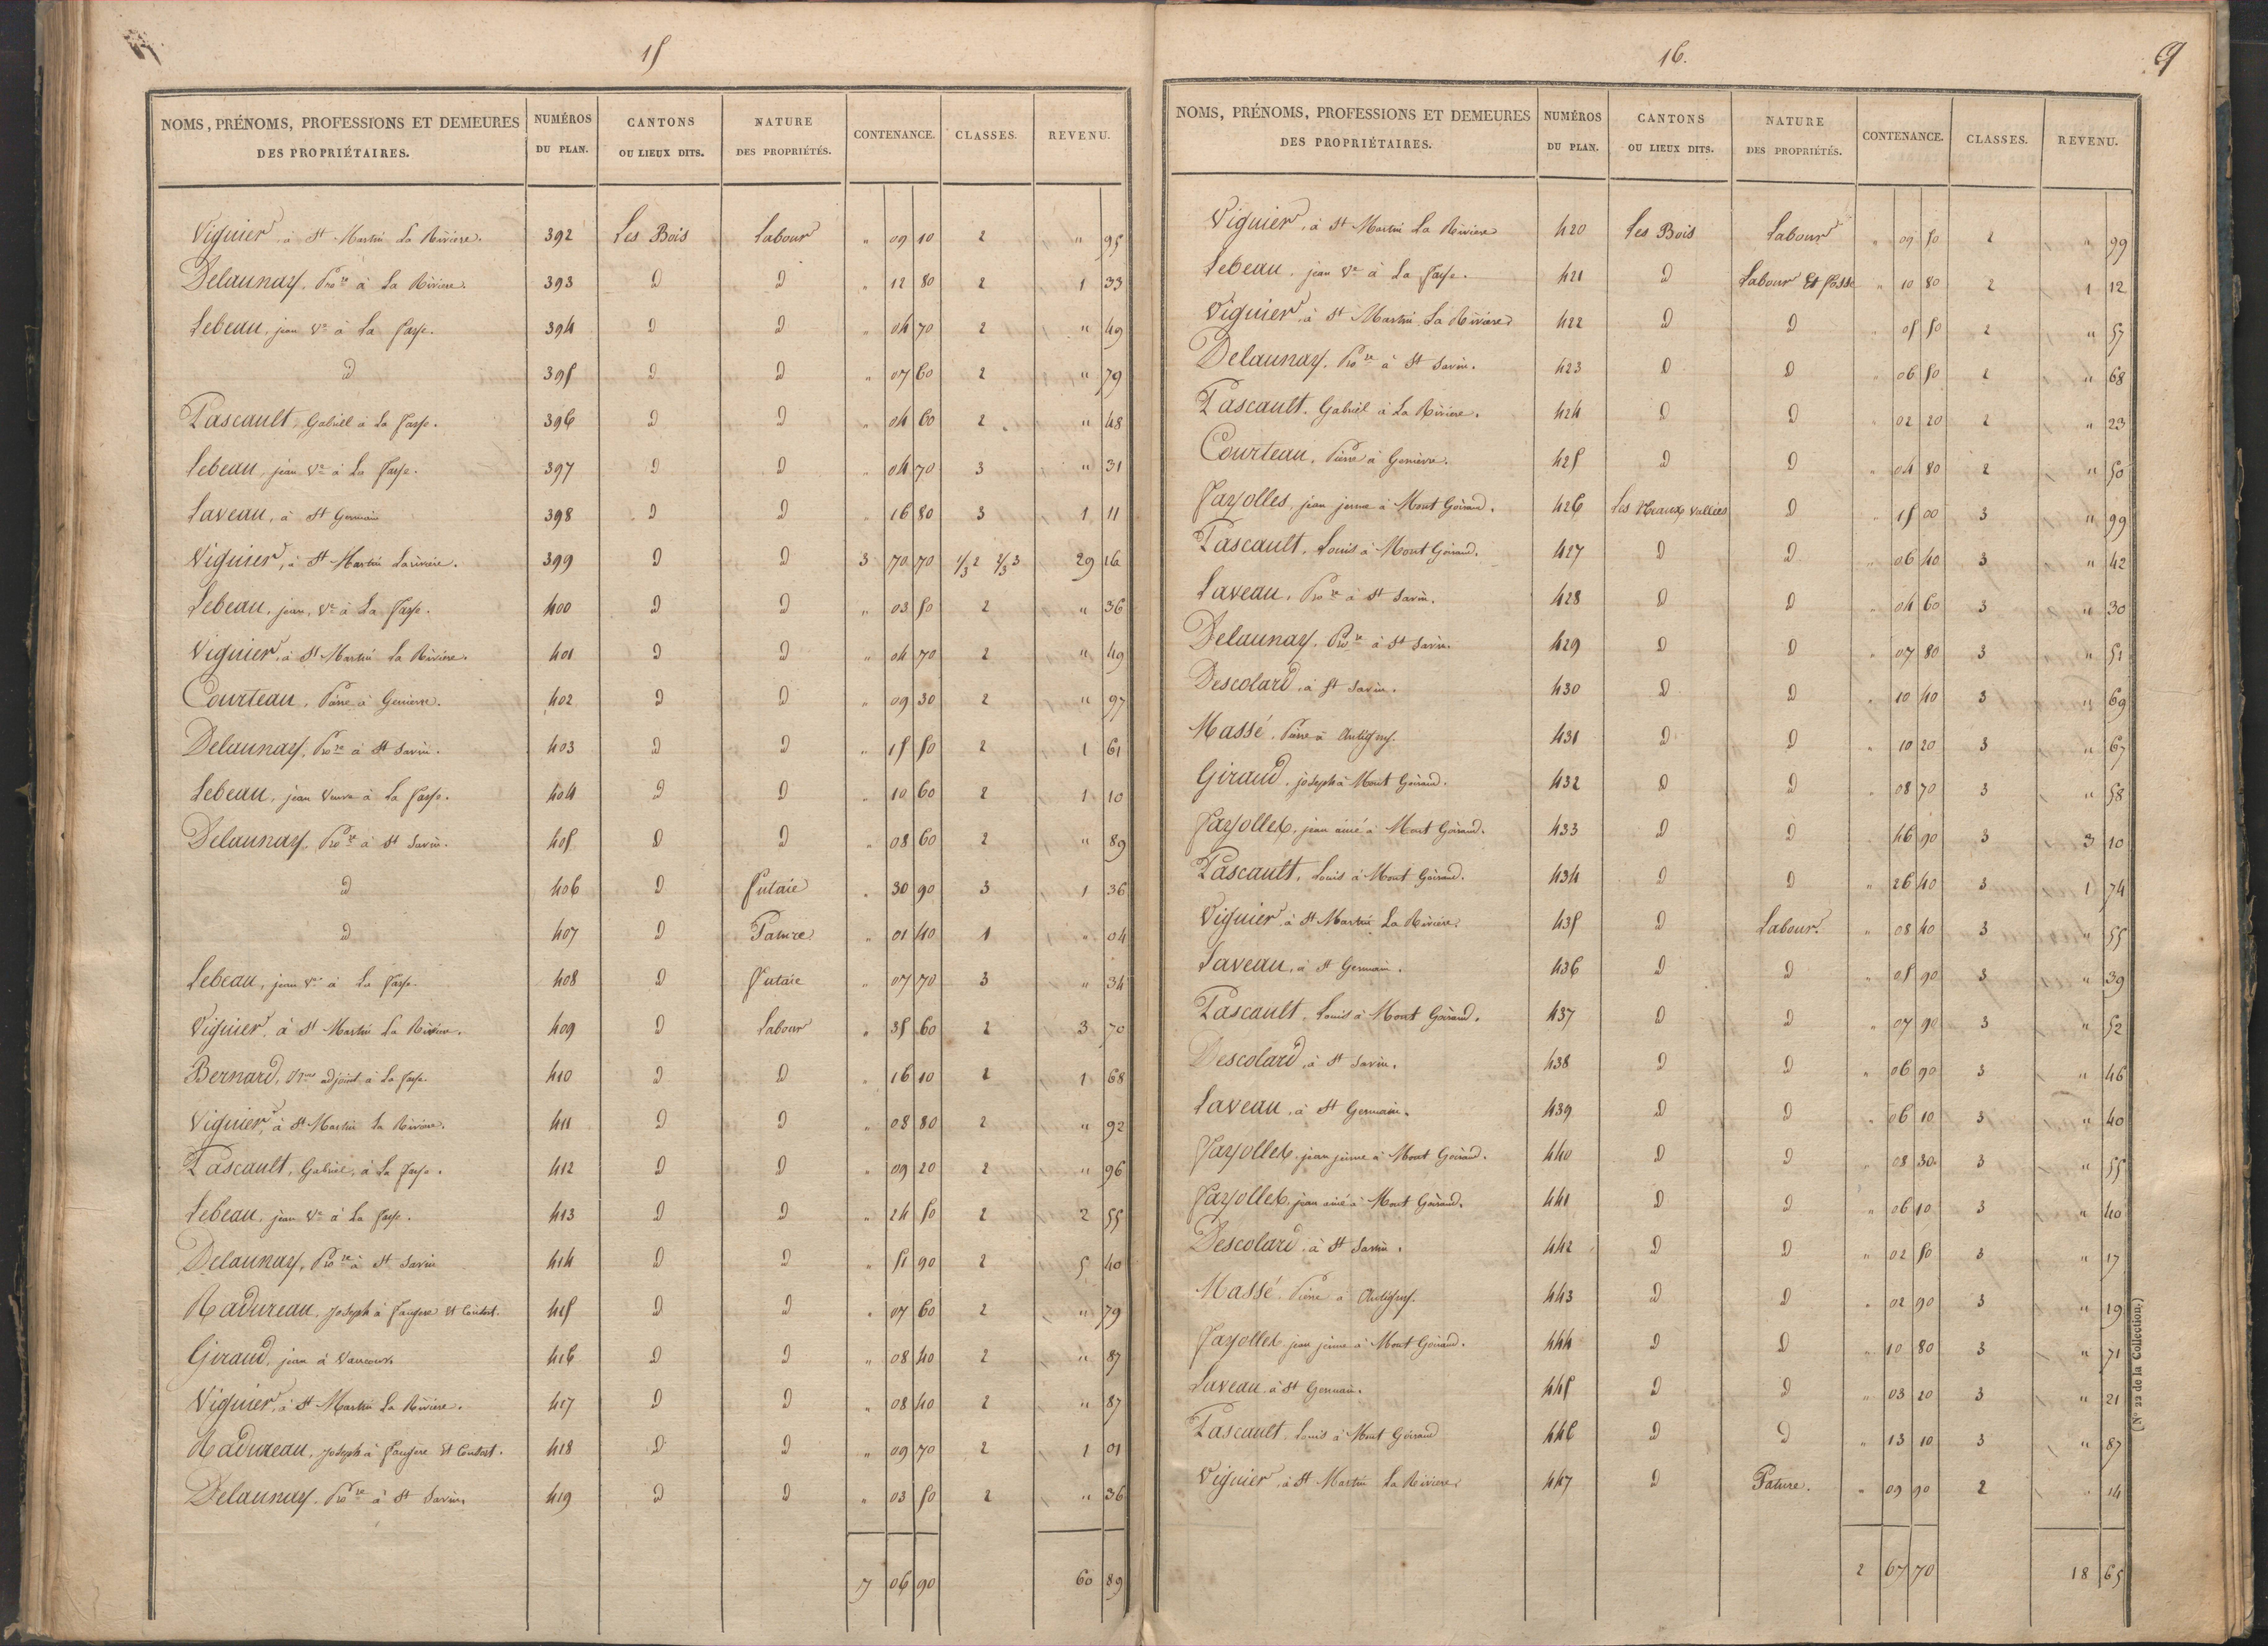 15
NOMS, PRÉNOMS, PROFESSIONS ET DEMEURES DES PROPRIÉTAIRES. NUMÉROS DU PLAN. CANTONS OU LIEUX DITS. NATURE DES PROPRIÉTÉS. CONTENANCE. CLASSES. REVENU.
Viguier, à St Martin La Rivière. 392 Les Bois Labour " 09 10 2 " 95
Delaunay, Pro re à La Rivière. 393 D D " 12 80 2 1 33
Lebeau, jean Ve à La Fasse. 394 D D " 04 70 2 " 49
D 395 D D " 07 60 2 " 79
Pascault, Gabriel à La Fasse. 396 D D " 04 60 2 " 48
Lebeau, jean Ve à La Fasse. 397 D D " 04 70 3 " 31
Laveau, à St Germain 398 D D " 16 80 3 1 11
Viguier, à St Martin Larivière. 399 D D 3 70 70 1/3 2 2/3 3 29 16
Lebeau, jean, Ve à La Fasse. 400 D D " 03 50 2 " 36
Viguier, à St Martin La Rivière. 401 D D " 04 70 2 " 49
Courteau, Pierre à Genièvre. 402 D D " 09 30 2 " 97
Delaunay, Pro re à St Savin. 403 D D " 15 50 2 1 61
Lebeau, jean Veuve à La Fasse. 404 D D " 10 60 2 1 10
Delaunay, Pro re à St Savin. 405 D D " 08 60 2 " 89
D 406 D Futaie " 30 90 3 1 36
D 407 D Pature " 01 40 1 " 04
Lebeau, jean Ve à La Fasse. 408 D Futaie " 07 70 3 " 34
Viguier, à St Martin La Rivière. 409 D Labour " 35 60 2 3 70
Bernard, adjoint à La Fasse. 410 D D " 16 10 2 1 68
Viguier, à St Martin La Rivière. 411 D D " 08 80 2 " 92
Pascault, Gabriel, à La Fasse. 412 D D " 09 20 2 " 96
Lebeau, jean Ve à La Fasse. 413 D D " 24 50 2 2 55
Delaunay, Pro re à St Savin 414 D D " 51 90 2 5 40
Radureau, Joseph à Faugere et Consort. 415 D D " 07 60 2 " 79
Giraud, jean à Vaucour. 416 D D " 08 40 2 " 87
Viguier, à St Martin La Rivière. 417 D D " 08 40 2 " 87
Radureau, Joseph à Faugere et Consort. 418 D D " 09 70 2 1 01
Delaunay, Pro re à St Savin. 419 D D " 03 50 2 " 36
7 06 90 60 89
16.
9
NOMS, PRÉNOMS, PROFESSIONS ET DEMEURES DES PROPRIÉTAIRES. NUMÉROS DU PLAN. CANTONS OU LIEUX DITS. NATURE DES PROPRIÉTÉS. CONTENANCE. CLASSES. REVENU.
Viguier, à St Martin La Rivière 420 Les Bois Labour " 09 50 2 " 99
Lebeau, jean Ve à La Fasse. 421 D Labour Et fosse " 10 80 2 1 12
Viguier, à St Martin La Rivière 422 D D " 05 50 2 " 57
Delaunay, Pro re à St Savin. 423 D D " 06 50 2 " 68
Pascault, Gabriel à La Rivière. 424 D D " 02 20 2 " 23
Courteau, Pierre à Genièvre. 425 D D " 04 80 2 " 50
Fayolles, jean jeune à Mont Goirand. 426 Les Vieaux Vallées D " 15 00 3 " 99
Pascault, Louis à Mont Goirand. 427 D D " 06 40 3 " 42
Laveau, Pro re à St Savin. 428 D D " 04 60 3 " 30
Delaunay, Pro re à St Savin. 429 D D " 07 80 3 " 51
Descolard, à St Savin. 430 D D " 10 40 3 " 69
Massé, Pierre à Antigny. 431 D D " 10 20 3 " 67
Giraud, joseph à Mont Goirand. 432 D D " 08 70 3 " 58
Fayolles, jean ainé à Mont Goirand. 433 D D " 46 90 3 3 10
Pascault, Louis à Mont Goirand. 434 D D " 26 40 3 1 74
Viguier à St Martin La Rivière. 435 D Labour. " 08 40 3 " 55
Laveau, à St Germain. 436 D D " 05 90 3 " 39
Pascault, Louis à Mont Goirand. 437 D D " 07 90 3 " 52
Descolard, à St Savin. 438 D D " 06 90 3 " 46
Laveau, à St Germain. 439 D D " 06 10 3 " 40
Fayolles, jean jeune à Mont Goirand. 440 D D " 08 30 3 " 55
Fayolles, jean ainé à Mont Goirand. 441 D D " 06 10 3 " 40
Descolard, à St Savin. 442 D D " 02 50 3 " 17
Massé, Pierre à Antigny. 443 D D " 02 90 3 " 19
Fayolles jean jeune à Mont Goirand. 444 D D " 10 80 3 " 71
Laveau, à St Germain. 445 D D " 03 20 3 " 21
Pascault, Louis à Mont Goirand 446 D D " 13 10 3 " 87
Viguier à St Martin La Rivière. 447 D Pature. " 09 90 2 " 14
2 67 70 18 65
(N° 22 de la Collection.)